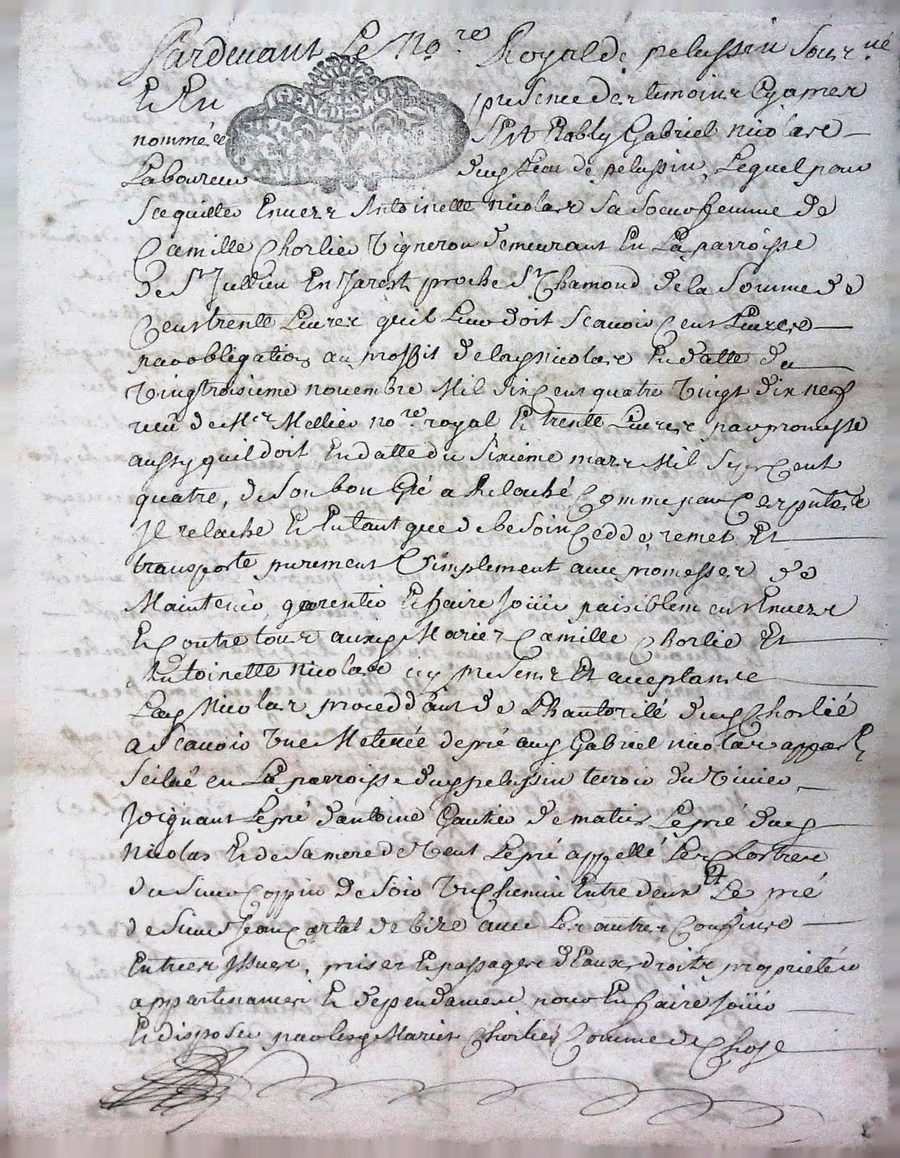 Pardevant Le No.re Royal de pelussin Sous.né
Et En presence des temoins Cy apres
nommés Gabriel nicolas
Laboureur dud. Lieu de pelussin, Lequel pour
S'equitter Envers Antoinette nicolas Sa Soeur femme de
Camille Chorlier Vigneron demeurant En La parroisse
de St Jullien En Jarest proche St Chamond de la Somme de
Cent trente Livres qu'il Leur doit Scavoir Cent Livres
par obligation au proffit de lad. nicolas En datte du
Vingt troisieme novembre Mil Six Cent quatre Vingt dix neuf
receu de Me Mellier no.re royal Et trente Livres par promesse
aussy qu'il doit En datte du Sixieme mars Mil Sept Cent
quatre, de Son bon Gré a Relaché Comme par Ces pntes
Il relache Et En tant que de besoin Cedde, remet Et
transporte purement Et Simplement avec promesses de
Maintenir, garentir Et faire Jouir paisiblement Envers
Et Contre tous auxd. Mariés Camille Chorlié Et
Antoinette nicolas icy presents Et acceptants
Lad. Nicolas procedant de L'hautorité dud. Chorlié
a Scavoir Une Meterée de pré aud. Gabriel nicolas appart.
Scitué en La parroisse dud. pelussin terroir du Vivier,
Joignant Le pré d'antoine Gautier de matin, Le pré dud.
Nicolas Et de Sa mere de Vent Le pré appellé Les
du Sieur Coppin de Soir Un Chemin Entre deux Et Le pré
de Sieur Jean Cartal de bize avec Les autres Confins
Entrées Issues, prises Et passages d'Eaux, droits proprietés
appartenances Et dependances pour En faire Jouir
Et disposer par lesd. Mariés Chorliés Comme de Chose